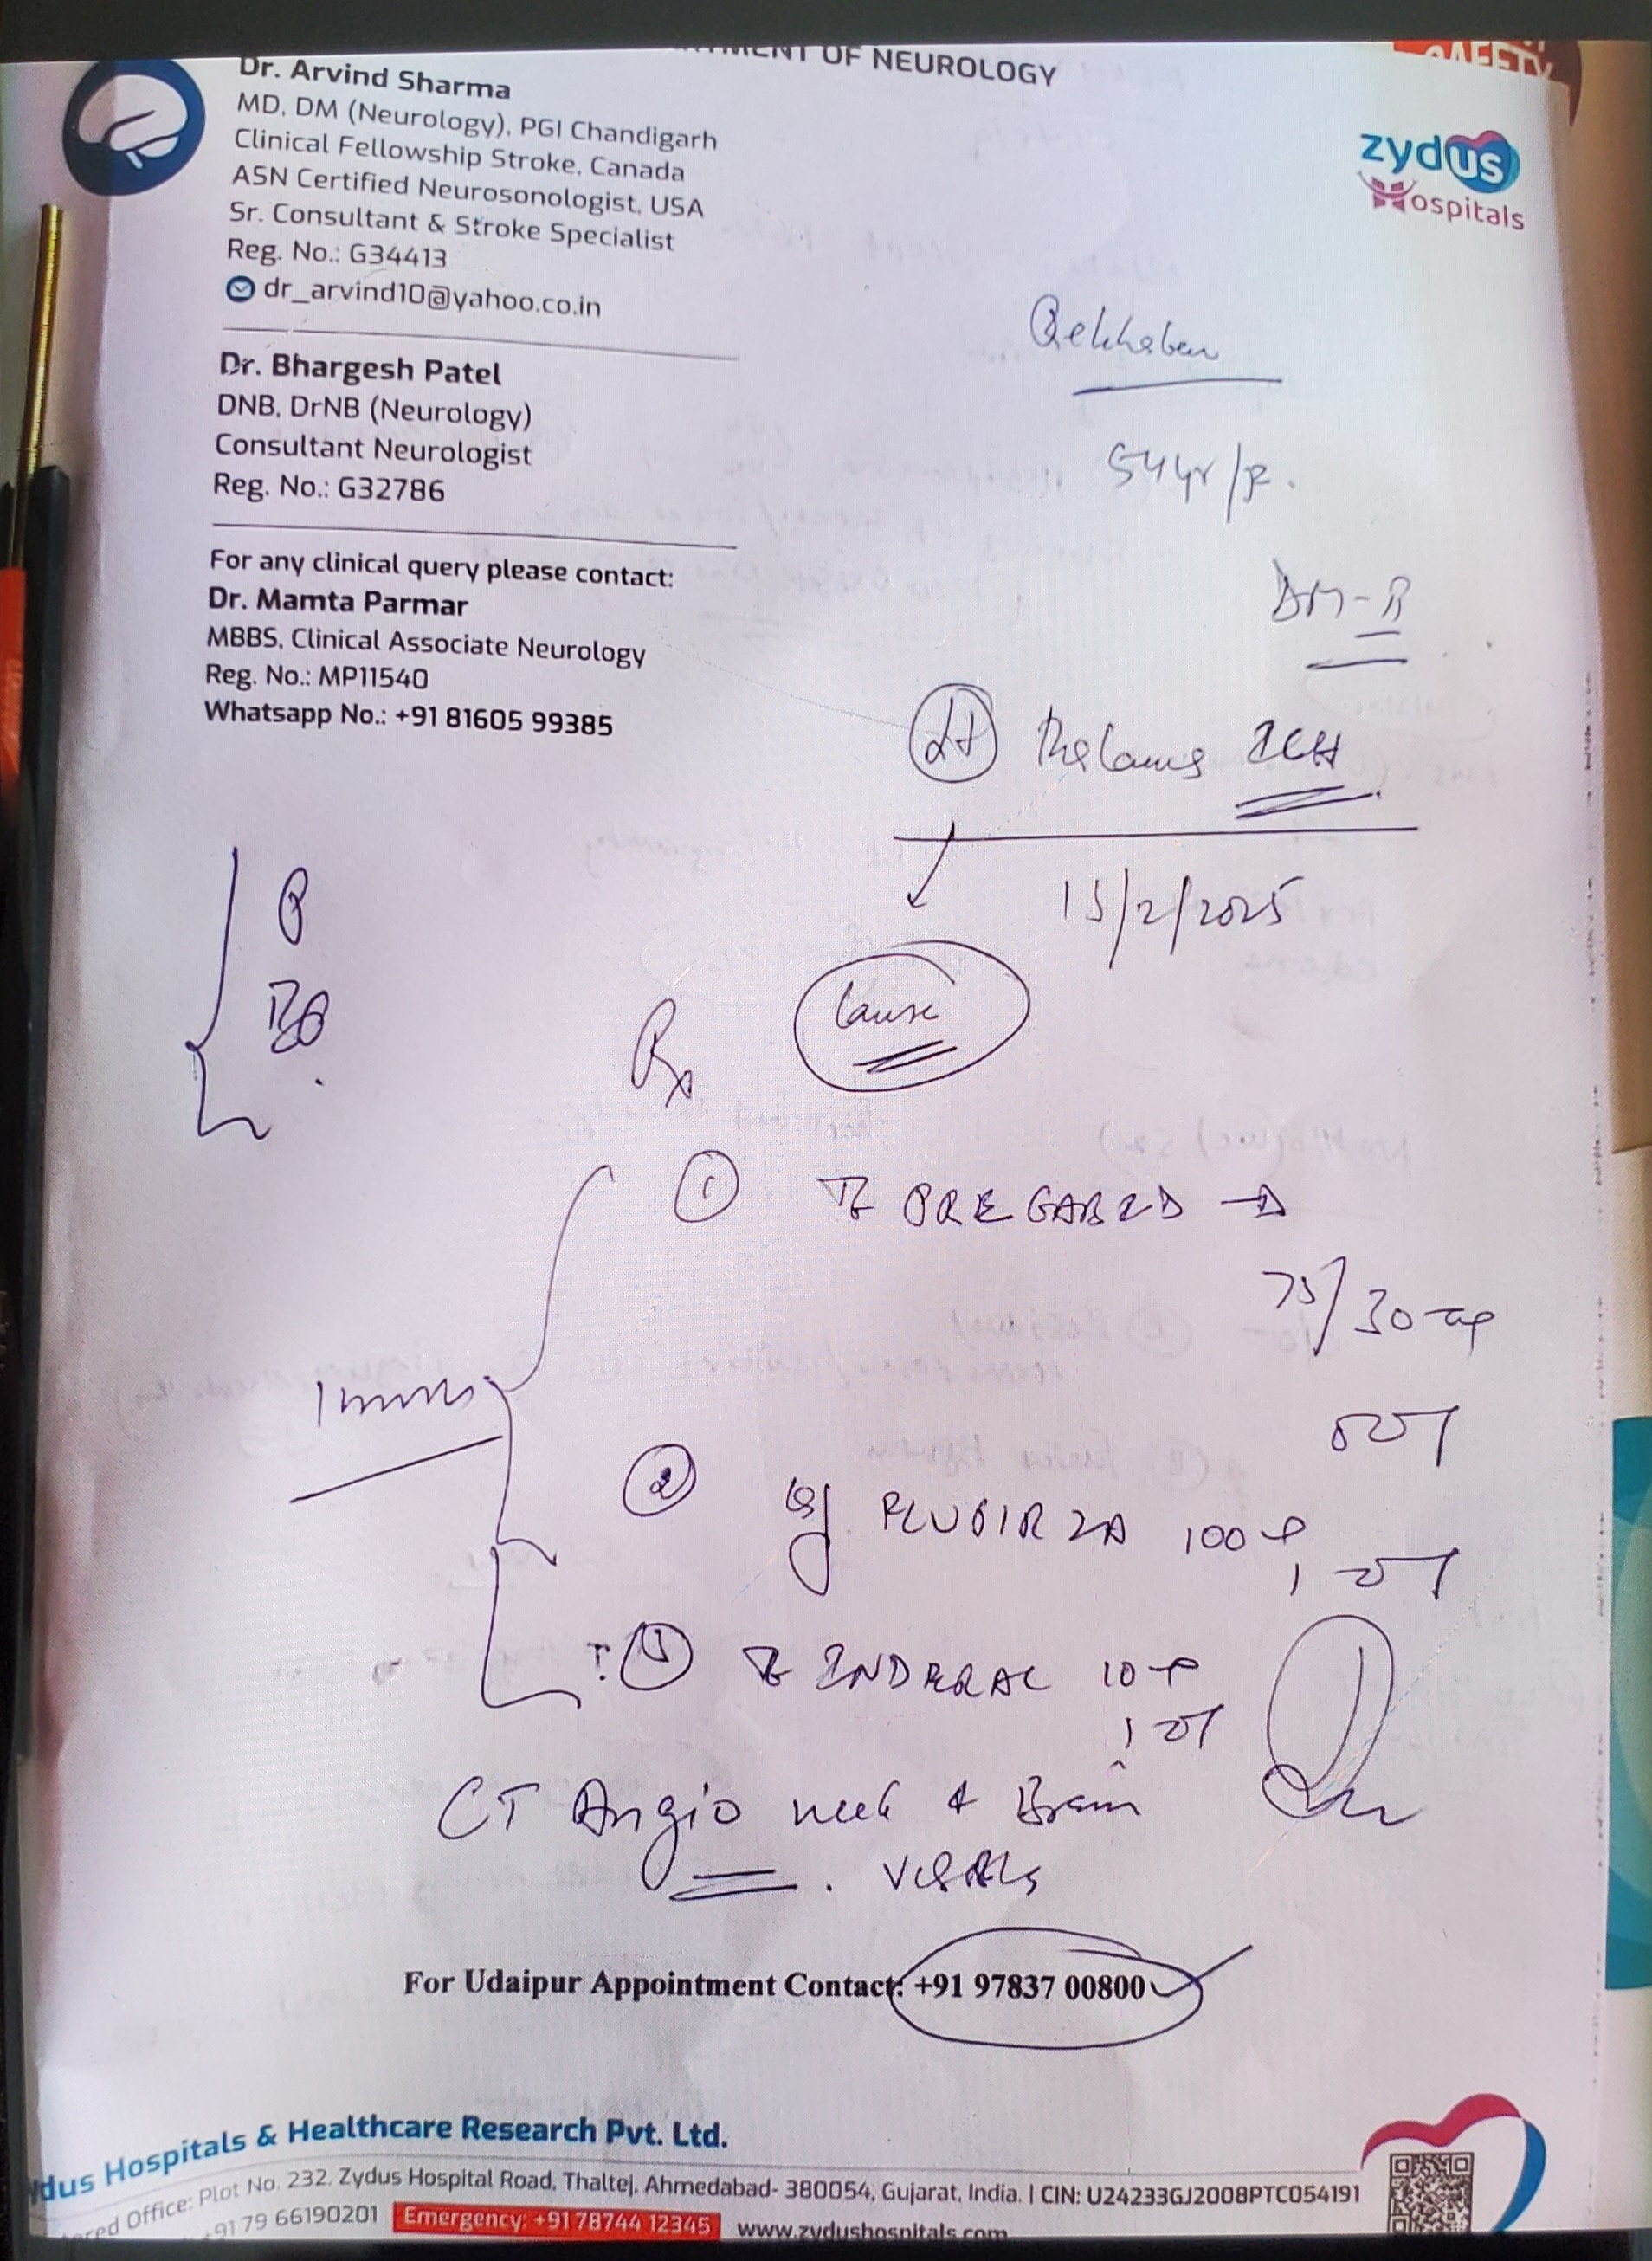 OF NEUROLOGY
SAFETY
Dr. Arvind Sharma
MD, DM (Neurology), PGI Chandigarh
Clinical Fellowship Stroke, Canada
ASN Certified Neurosonologist, USA
Sr. Consultant & Stroke Specialist
Reg. No.: G34413
dr_arvind10@yahoo.co.in
zydus
Hospitals
Rekhaben
Dr. Bhargesh Patel
DNB, DrNB (Neurology)
Consultant Neurologist
Reg. No.: G32786
54yr/F.
For any clinical query please contact:
Dr. Mamta Parmar
MBBS, Clinical Associate Neurology
Reg. No.: MP11540
Whatsapp No.: +91 81605 99385
Thalamus ICH
15/2/2025
Cause
Rx
1
PREGABID
75/30
2
100
INDERAL 10
CT Angio neck & Brain
vessels
For Udaipur Appointment Contact: +91 97837 00800
dus Hospitals & Healthcare Research Pvt. Ltd.
ered Office: Plot No. 232, Zydus Hospital Road, Thaltej, Ahmedabad- 380054, Gujarat, India. | CIN: U24233GJ2008PTC054191
+91 79 66190201 Emergency: +91 78744 12345 www.zydushospitals.com